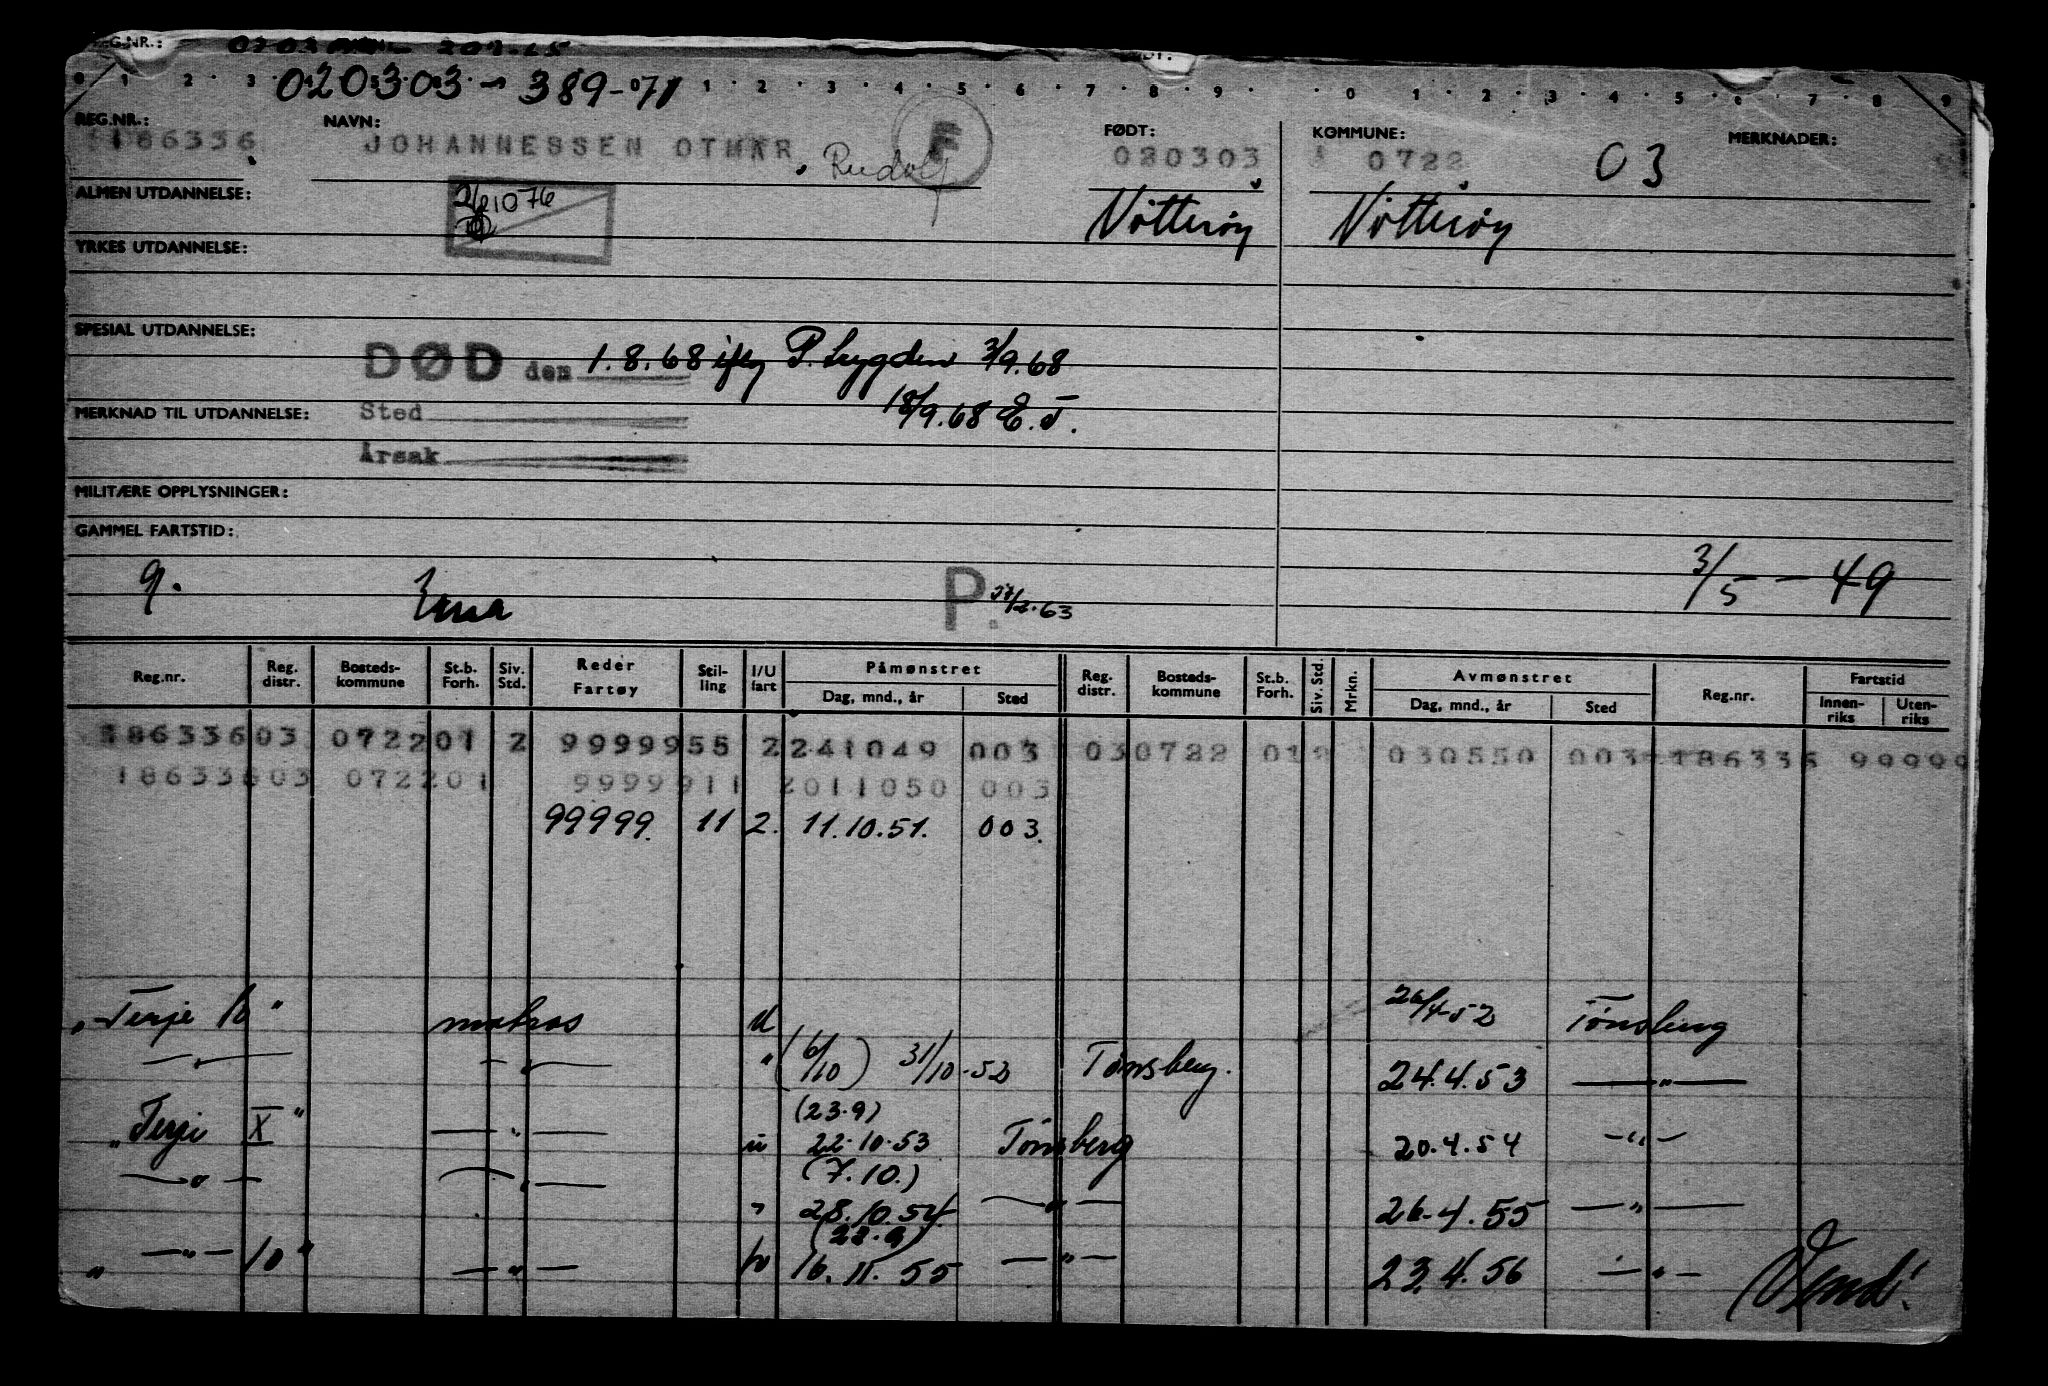 REG.NR.:
0 1 2 3 4 5 6 7 8 9 0 1 2 3 4 5 6 7 8 9
020303 - 389-71
REG.NR.: NAVN: FØDT: KOMMUNE: MERKNADER:
186336 JOHANNESSEN OTMAR, Rudolf F 020303 0722 03
ALMEN UTDANNELSE: Nøtterøy Nøtterøy
1076
YRKES UTDANNELSE:
SPESIAL UTDANNELSE:
DØD den 1.8.68 ifølg P. Lygden 3/9.68
MERKNAD TIL UTDANNELSE: Sted 18/9.68 E.J.
Årsak
MILITÆRE OPPLYSNINGER:
GAMMEL FARTSTID:
g. Erna P. 27/2.63 3/5 - 49
Reg.nr. Reg. distr. Bosteds-kommune St.b. Forh. Siv. Std. Reder Fartøy Stil-ling I/U fart Påmønstret Dag, mnd., år Sted Reg. distr. Bosteds-kommune St.b. Forh. Siv. Std. Mrkn. Avmønstret Dag, mnd., år Sted Reg.nr. Fartstid Innen-riks Uten-riks
18633603 072201 2 9999955 2241049 003 030722 012 030550 003 186336 99999
18633603 072201 9999911 2011050 003
99999. 11 2. 11.10.51. 003.
"Terje 10" matros u 26/4-52 Tønsberg
— " — — " — " (6/10) 31/10-52 Tønsberg. 24.4.53 — " —
(23.9)
"Terje X" — " — u 22.10.53 Tønsberg 20.4.54 — " —
(7.10.)
— " — — " — " 28.10.54 — " — 26.4.55 — " —
(22.9)
" — " — 10" — " — 16.11.55 — " — 23.4.56 — " — Vend!